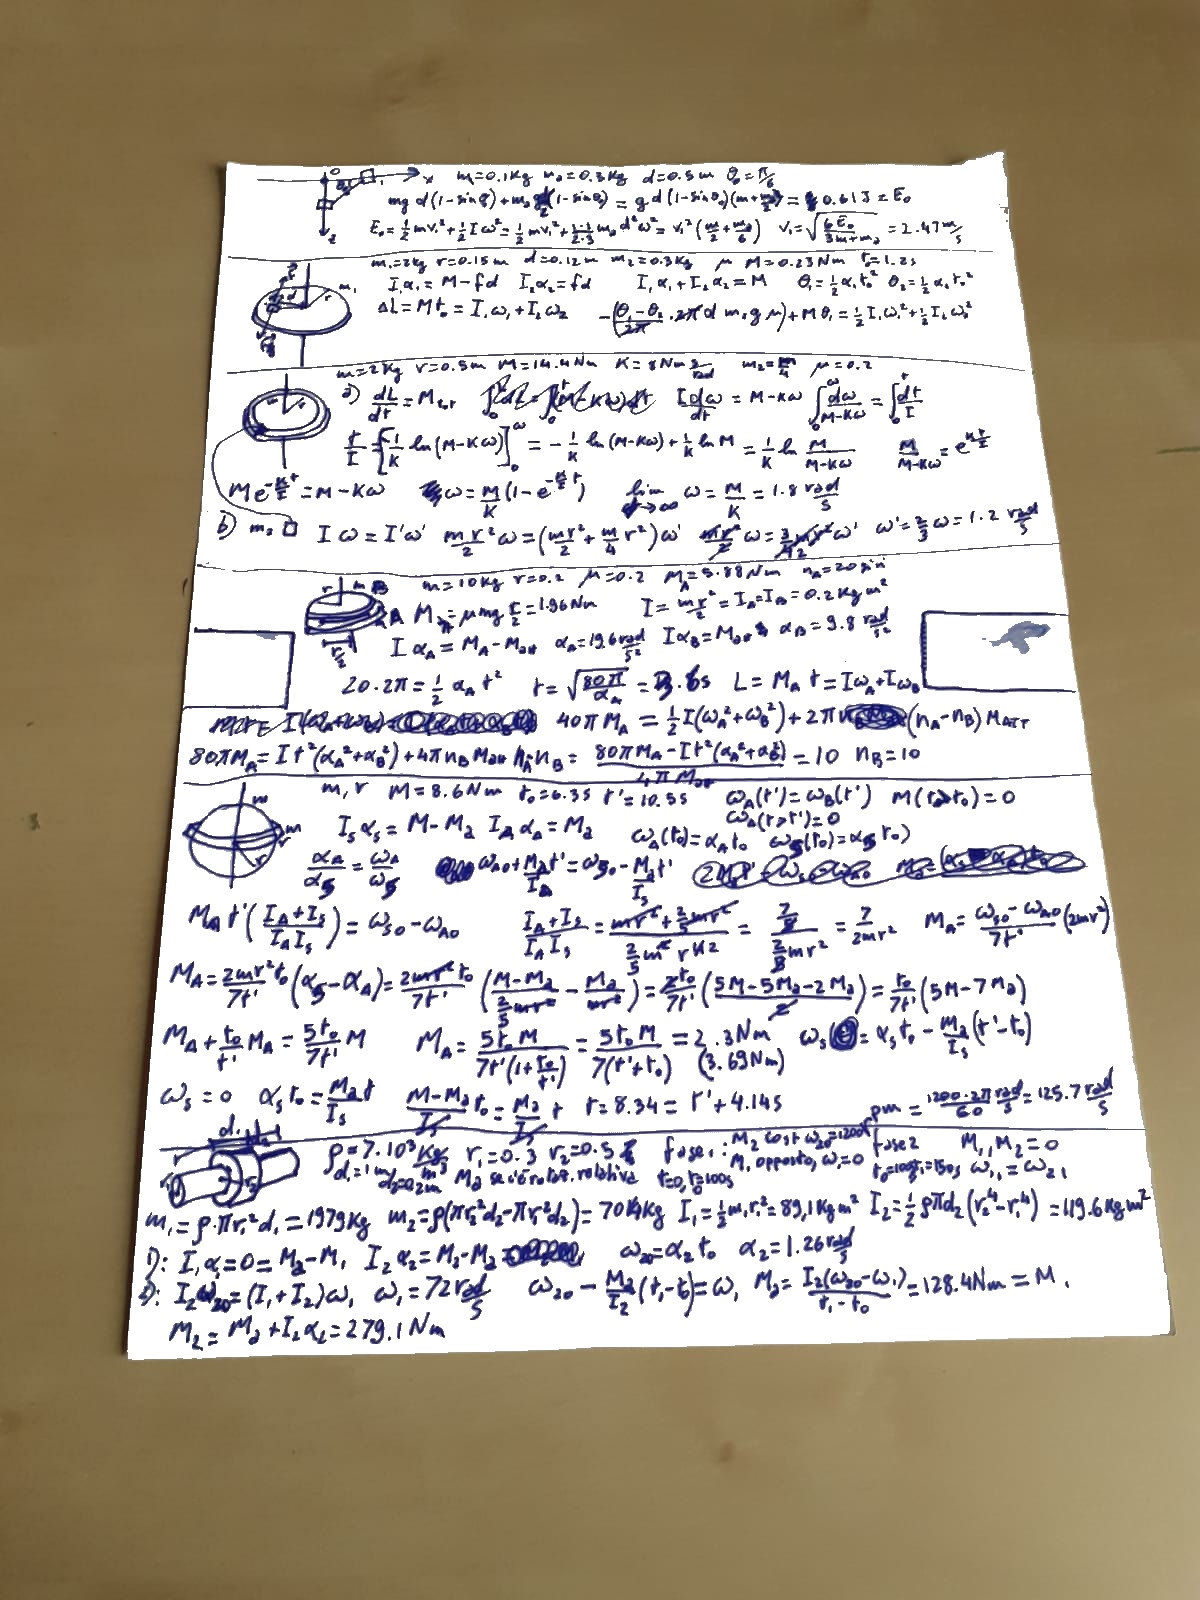 m=0.1Kg m₂=0.3Kg d=0.5m θ₀=π/6
mg d(1-sinθ₀)+m₂g d/2(1-sinθ₀) = g d(1-sinθ₀)(m+m₂/2) = 0.61J = E₀
E₀=1/2 mv₁²+1/2 Iω²=1/2 mv₁²+1/2·1/3 m₂d²ω²=v₁²(m/2+m₂/6) v₁=√(6E₀/(3m+m₂)) = 2.47 m/s
m₁=2Kg r=0.15m d=0.12m m₂=0.3Kg μ M=0.23Nm t₀=1.2s
I₁α₁=M-fd I₂α₂=fd I₁α₁+I₂α₂=M θ₁=1/2 α₁t₀² θ₂=1/2 α₂t₀²
ΔL=Mt₀=I₁ω₁+I₂ω₂ -((θ₁-θ₂)/2π ·2π d m₂gμ)+Mθ₁=1/2 I₁ω₁²+1/2 I₂ω₂²
m=2Kg r=0.5m M=14.4Nm K=8Nm s/rad m₂=m/4 μ=0.2
a) dL/dt=Mtot I dω/dt = M-Kω ∫₀^ω dω/(M-Kω) = ∫₀^t dt/I
t/I = [-1/K ln(M-Kω)]₀^ω = -1/K ln(M-Kω)+1/K ln M = 1/K ln M/(M-Kω) M/(M-Kω) = e^(Kt/I)
Me^(-K/I t)=M-Kω ω=M/K(1-e^(-K/I t)) lim t→∞ ω=M/K=1.8 rad/s
b) m₂ Iω=I'ω' mr²/2 ω=(mr²/2+m/4 r²)ω' mr²/2 ω=3/4 mr² ω' ω'=2/3 ω=1.2 rad/s
m=10Kg r=0.2 μ=0.2 M_A=5.88Nm n_A=20giri
B
A M_att=μmg r/2=1.96Nm I=mr²/2=I_A=I_B=0.2Kgm²
Iα_A=M_A-Matt α_A=19.6 rad/s² Iα_B=Matt α_B=9.8 rad/s²
20·2π=1/2 α_A t² t=√(80π/α_A)=3.6s L=M_A t=Iω_A+Iω_B
40πM_A=1/2 I(ω_A²+ω_B²)+2π(n_A-n_B)Matt
80πM_A=It²(α_A²+α_B²)+4πn_B Matt n_A-n_B=(80πM_A-It²(α_A²+α_B²))/(4πMatt)=10 n_B=10
m,r M=8.6Nm t₀=6.3s t'=10.5s ω_A(t')=ω_B(t') M(t>t₀)=0
I_sα_s=M-M_a I_Aα_A=M_a ω_A(t>t')=0
ω_A(t₀)=α_A t₀ ω_s(t₀)=α_s t₀
α_A/α_s=ω_A/ω_s ω_A0+M_a/I_A t'=ω_s0-M_a/I_s t'
M_A t'((I_A+I_s)/(I_A I_s))=ω_s0-ω_A0 (I_A+I_s)/(I_A I_s)=(mr²+2/5 mr²)/(2/5 m² r⁴)=(7/5)/(2/5 mr²)=7/2mr² M_A=(ω_s0-ω_A0)/7t' (2mr²)
M_A=2mr²t₀/7t' (α_s-α_A)=2mr²t₀/7t' ((M-M_a)/(2/5 mr²)-M_a/mr²)=2t₀/7t' ((5M-5M_a-2M_a)/2)=t₀/7t' (5M-7M_a)
M_A+t₀/t' M_A=5t₀/7t' M M_A=5t₀M/(7t'(1+t₀/t'))=5t₀M/(7(t'+t₀))=2.3Nm (3.69Nm) ω_s=α_s t₀-M_a/I_s (t'-t₀)
ω_s=0 α_s t₀=M_a t/I_s (M-M_a)/I_s t₀=M_a/I_s t t=8.34=t'+4.14s rpm=1200·2π/60 rad/s=125.7 rad/s
d₁ d₂ ρ=7·10³Kg/m³ r₁=0.3 r₂=0.5 fase 1: M₂ cost ω₂₀=1200 fase 2 M₁,M₂=0
d₁=1m d₂=0.2m M_a se c'è rotaz. relativa t=0, t₀=100s M₁ opposto, ω₁=0 t₀=100s t₁=150s ω₁₁=ω₂₁
m₁=ρ·πr₁²d₁=1979Kg m₂=ρ(πr₂²d₂-πr₁²d₂)=704Kg I₁=1/2 m₁r₁²=89,1Kgm² I₂=1/2 ρπd₂(r₂⁴-r₁⁴)=119.6Kgm²
1): I₁α₁=0=M_a-M₁ I₂α₂=M₂-M_a ω₂₀=α₂t₀ α₂=1.26 rad/s
2): I₂ω₂₀=(I₁+I₂)ω₁ ω₁=72 rad/s ω₂₀-M_a/I₂ (t₁-t₀)=ω₁ M_a=I₂(ω₂₀-ω₁)/(t₁-t₀)=128.4Nm=M₁
M₂=M_a+I₂α₂=279.1Nm